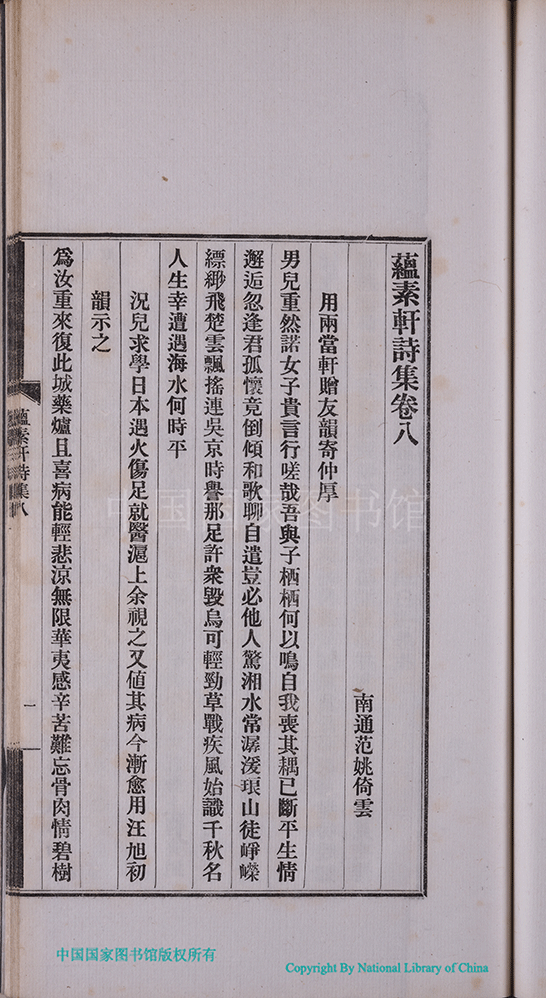 蘊素軒詩集卷八
南通范姚倚雲
用兩當軒贈友韻寄仲厚
男兒重然諾女子貴言行嗟哉吾與子栖栖何以鳴自我喪其耦已斷平生情
邂逅忽逢君孤懷竟倒傾和歌聊自遣豈必他人驚湘水常潺湲琅山徒崢嶸
縹緲飛楚雲飄搖連吳京時譽那足許衆毀烏可輕勁草戰疾風始識千秋名
人生幸遭遇海水何時平
況兒求學日本遇火傷足就醫滬上余視之又値其病今漸愈用汪旭初
韻示之
爲汝重來復此城藥爐且喜病能輕悲涼無限華夷感辛苦難忘骨肉情碧樹
蘊素軒詩集八
一
中国国家图书馆
中国国家图书馆版权所有
Copyright By National Library of China